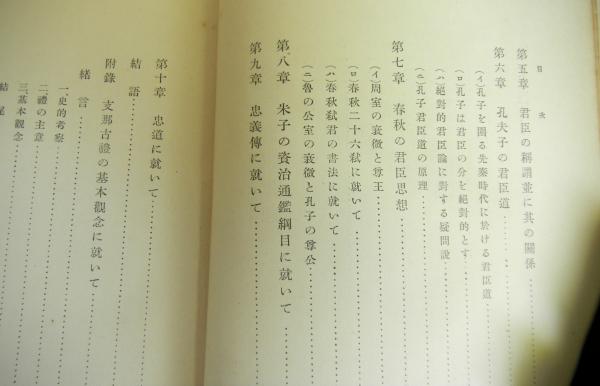 目次
第五章 君臣の稱謂並に其の關係
第六章 孔夫子の君臣道
(イ)孔子を圍る先秦時代に於ける君臣道
(ロ)孔子は君臣の分を絕對的とす
(ハ)絕對的君臣論に對する疑問說
(ニ)孔子君臣道の原理
第七章 春秋の君臣思想
(イ)周室の衰微と尊王
(ロ)春秋二十六弑に就いて
(ハ)春秋弑君の書法に就いて
(ニ)魯の公室の衰微と孔子の尊公
第八章 朱子の資治通鑑綱目に就いて
第九章 忠義傳に就いて
第十章 忠道に就いて
結語
附錄 支那古禮の基本觀念に就いて
緒言
一、史的考察
二、禮の主意
三、基本觀念
結尾